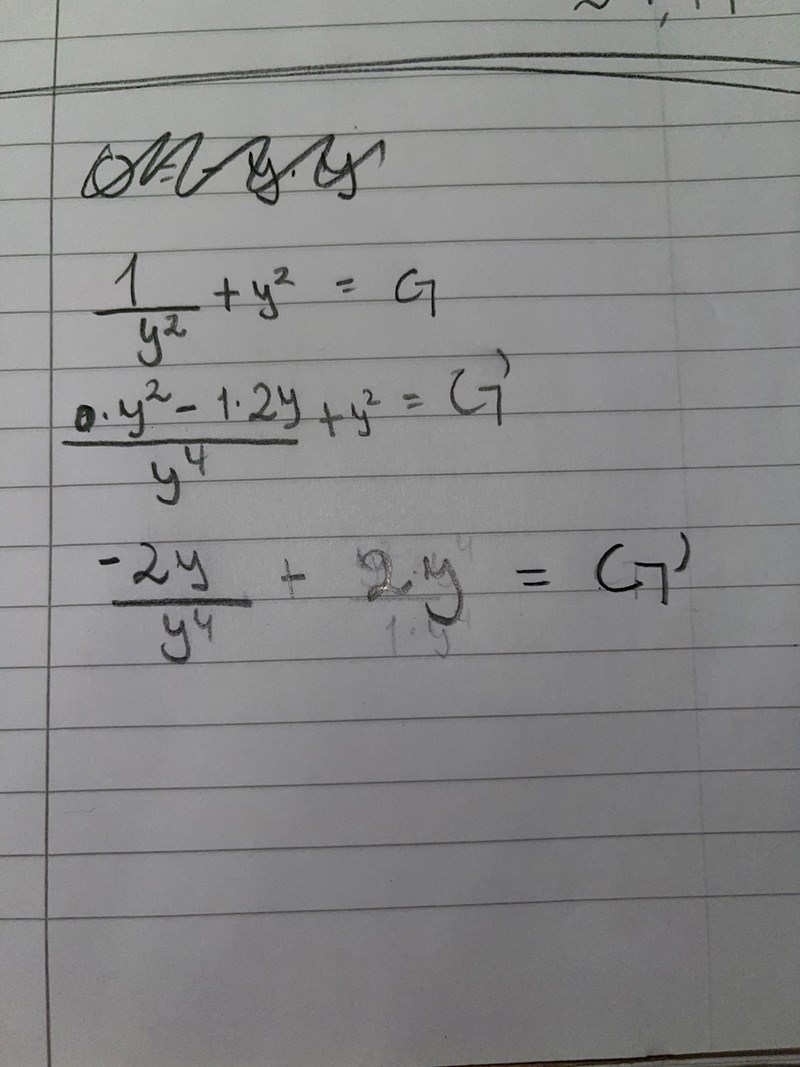 1/y² + y² = G
(0·y² - 1·2y)/y⁴ + y² = G'
-2y/y⁴ + 2y = G'